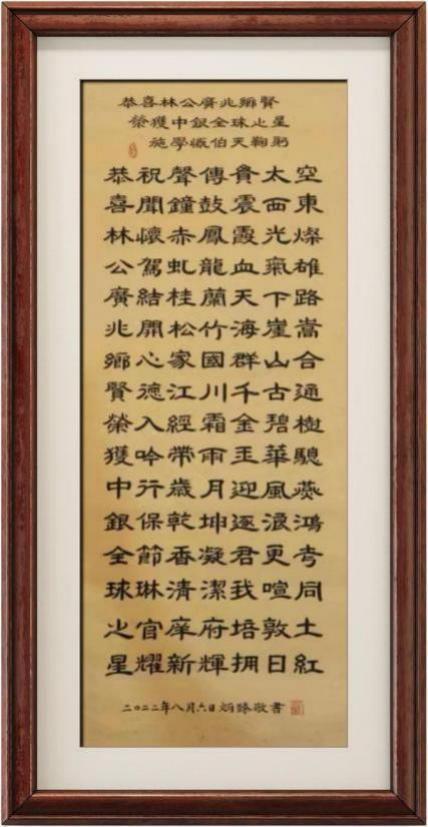 恭喜林公廣兆鄉賢
榮獲中銀全球之星
施學概伯天鞠躬
恭祝聲傳貴太空
喜聞鐘鼓震西東
林懷赤鳳霞光燦
公駕虬龍血氣雄
廣結桂蘭天下路
兆開松竹海崖嵩
鄉心家國群山合
賢德江川千古通
榮入經霜金碧樹
獲吟帶雨玉華驄
中行歲月迎風燕
銀保乾坤逐浪鴻
全節香凝君更考
球琳清潔我喧同
之官庠府培敦土
星耀新輝拥日紅
二〇二二年八月六日炳臻敬書